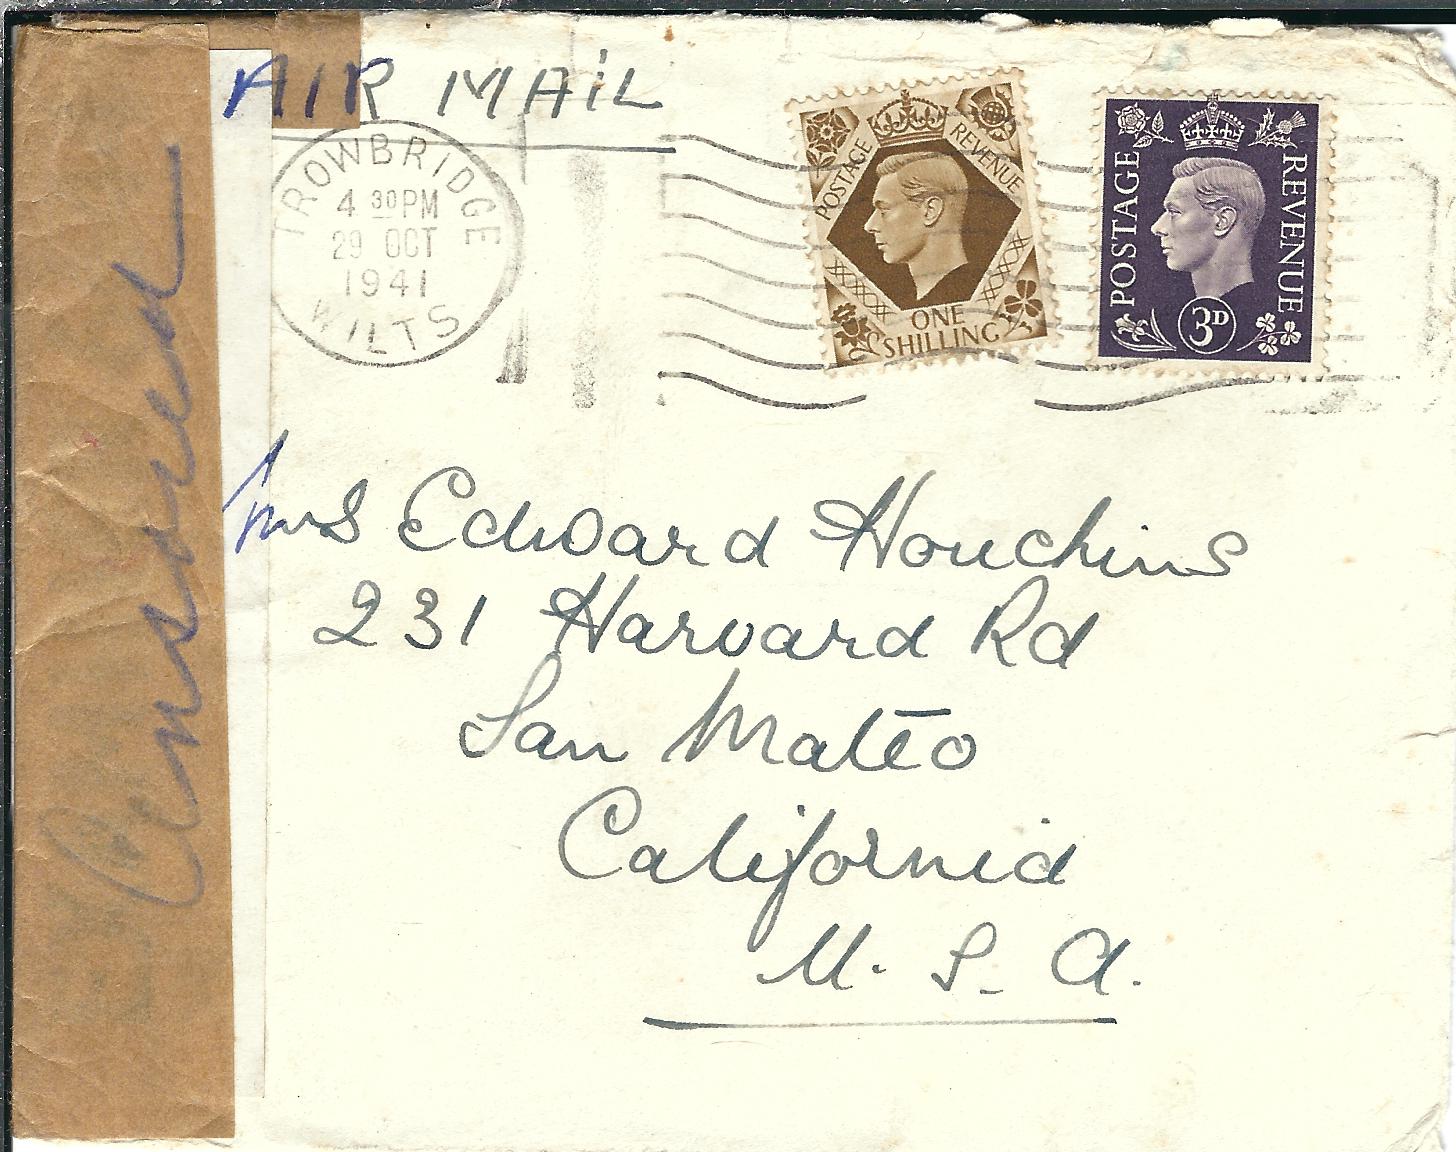 AIR MAIL
TROWBRIDGE
4 30 PM
29 OCT
1941
WILTS
POSTAGE REVENUE
ONE
SHILLING
POSTAGE REVENUE
3D
Censored
Mrs Edward Houchins
231 Harvard Rd
San Mateo
California
U. S. A.